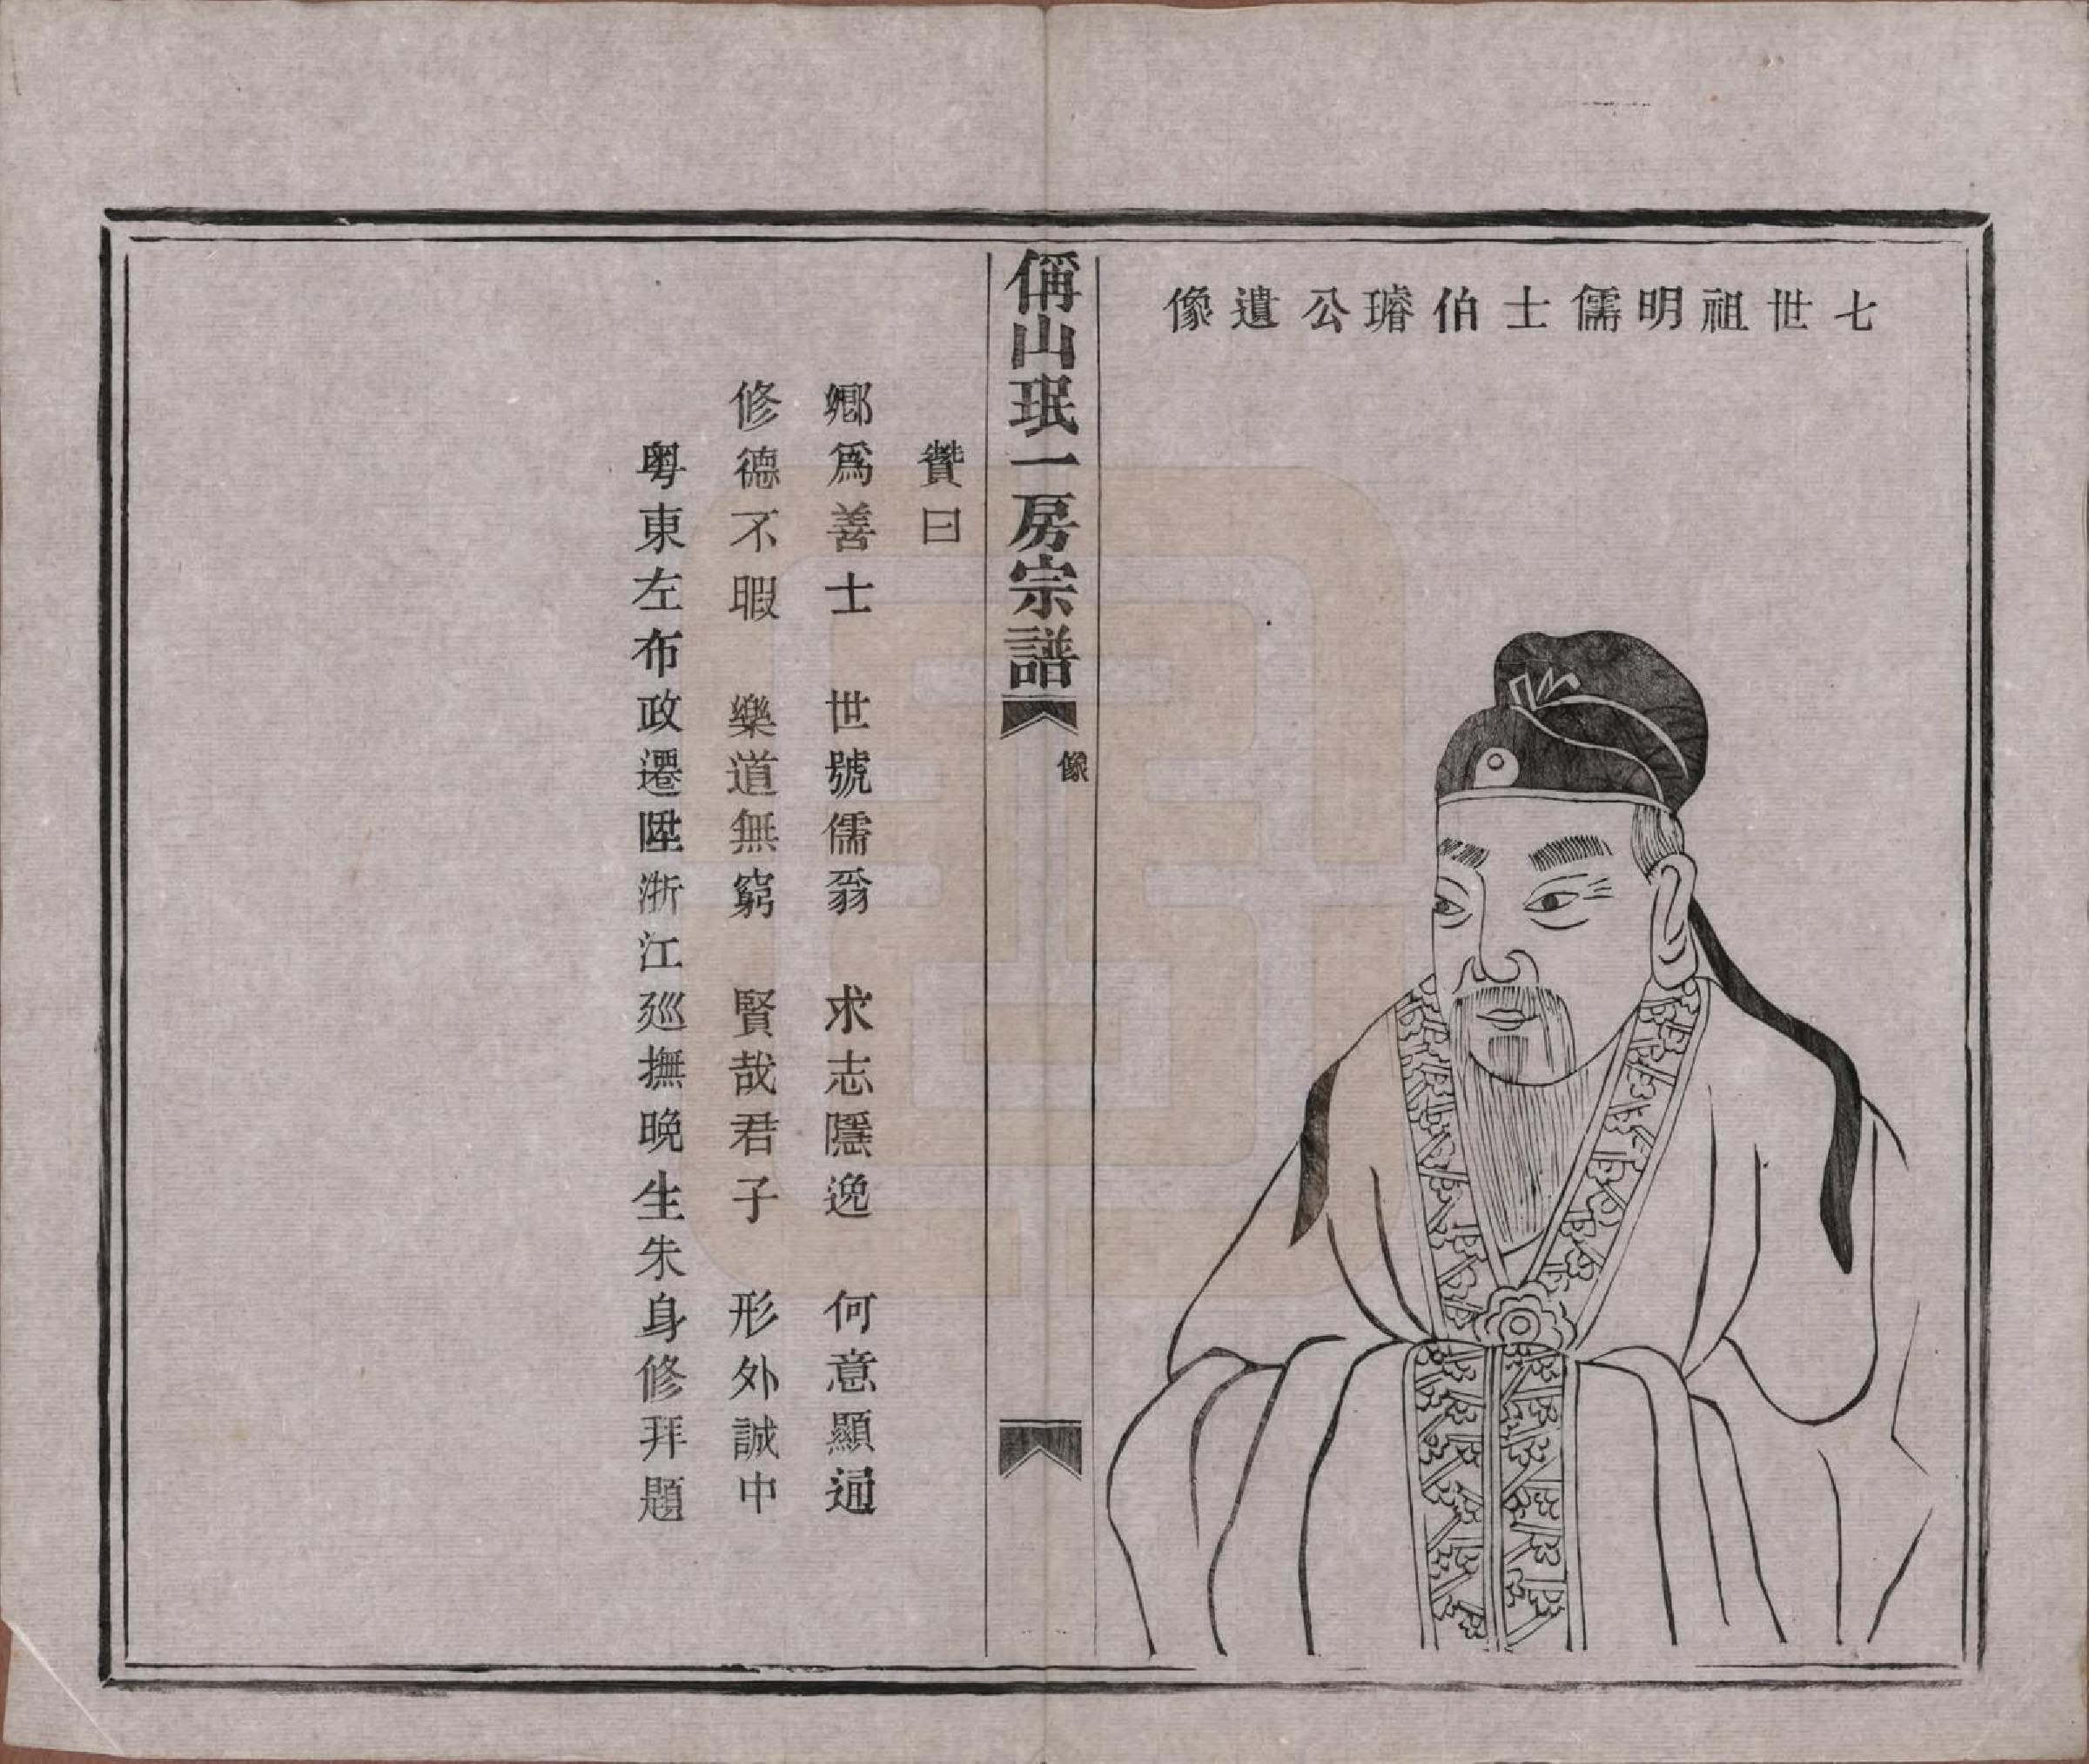 七世祖明儒士伯璿公遺像
偁山珉一房宗譜
像
贊曰
鄉爲善士　世號儒翁　求志隱逸　何意顯通
修德不暇　樂道無窮　賢哉君子　形外誠中
粵東左布政遷陞浙江廵撫晚生朱身修拜題